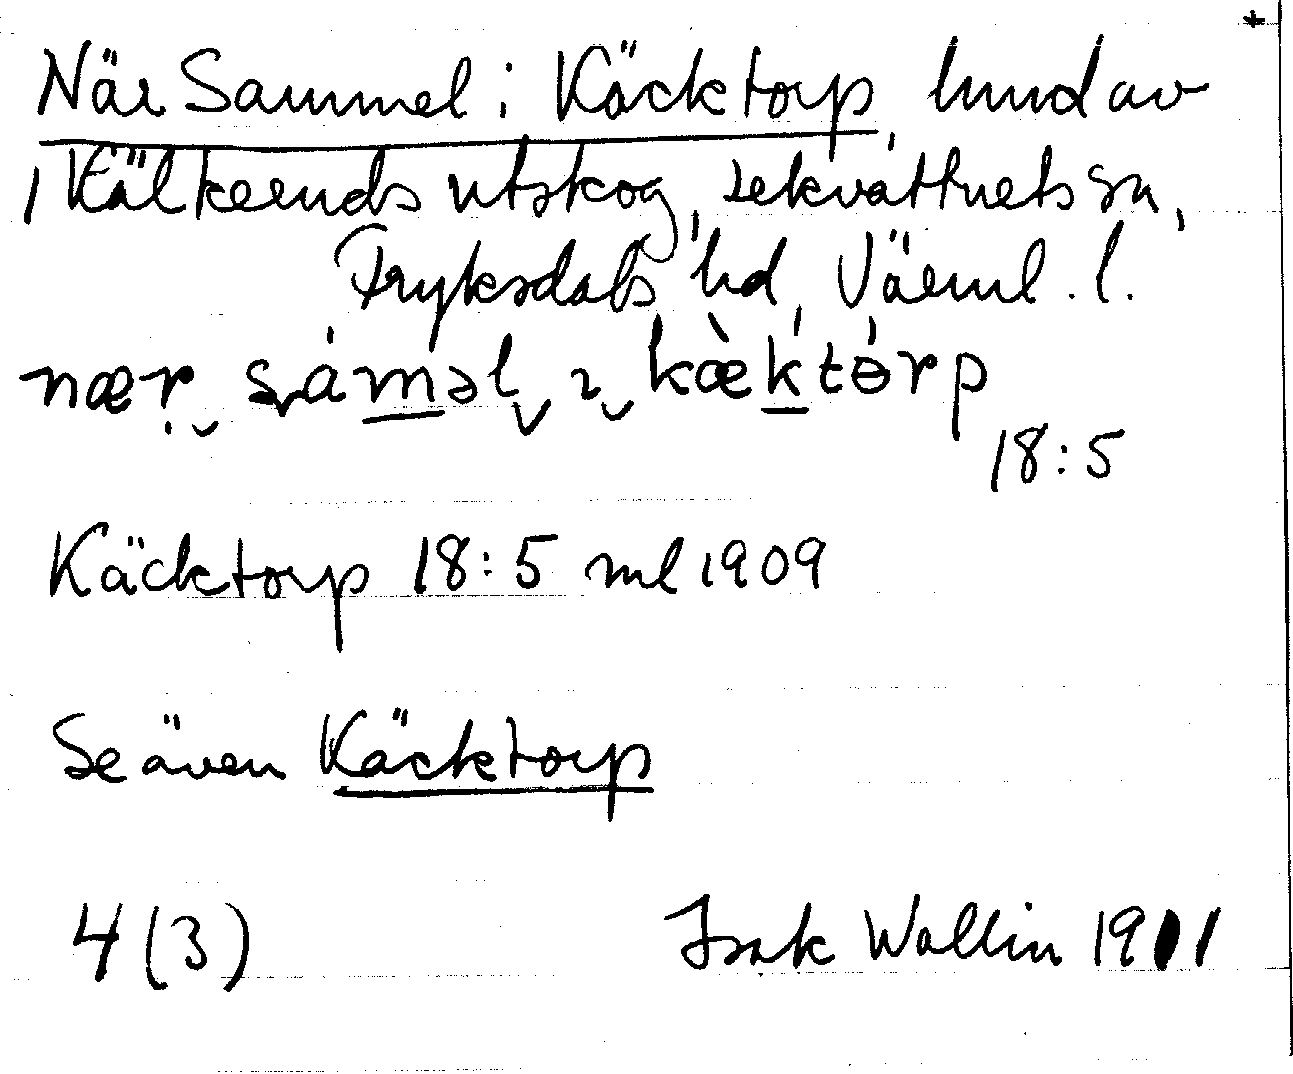 När Sammel i Käcktorp, hmd av
i Kälkeruds utskog, Lekvattnets sn,
Fryksdals hd, Värml. l.
nær saməl ı kæktɵrp
18:5
Käcktorp 18:5 ml 1909
Se även Käcktorp
4 (3) Isak Wallin 1911